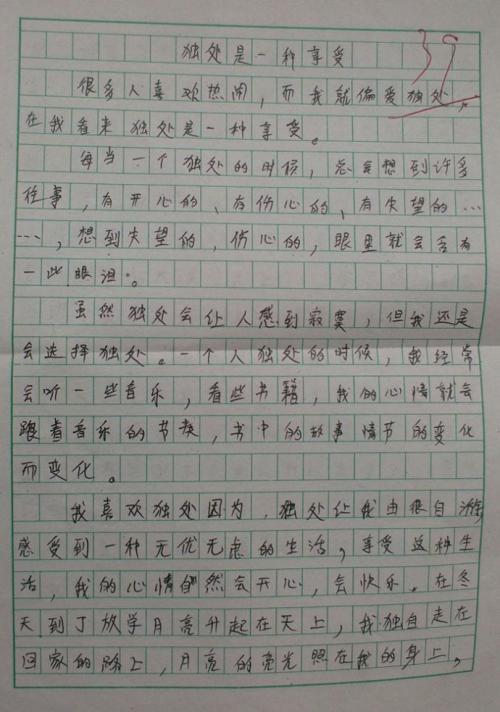 独处是一种享受
39
很多人喜欢热闹，而我就偏爱独处，
在我看来独处是一种享受。
每当一个独处的时候，总会想到许多
往事，有开心的、有伤心的、有失望的…
…，想到失望的，伤心的，眼里就会含有
一些眼泪。
虽然独处会让人感到寂寞，但我还是
会选择独处。一个人独处的时候，我经常
会听一些音乐，看些书籍，我的心情就会
跟着音乐的节奏，书中的故事情节的变化
而变化。
我喜欢独处因为，独处让我由很自
感受到一种无忧无虑的生活，享受这种生
活，我的心情自然会开心，会快乐。在冬
天到了放学月亮升起在天上，我独自走在
回家的路上，月亮的亮光照在我的身上，